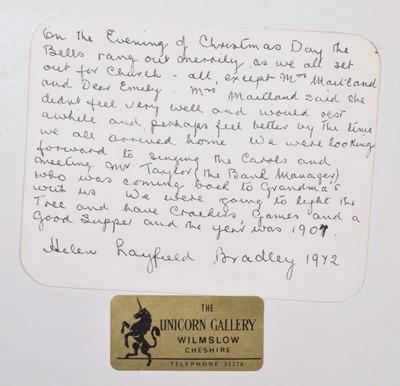 On the Evening of Christmas Day the
Bells rang out merrily as we all set
out for Church - all, except Mrs Maitland
and Dear Emily. Mrs Maitland said she
didnt feel very well and would rest
awhile and perhaps feel better by the time
we all arrived home. We were looking
forward to singing the Carols and
meeting Mr Taylor (the Bank Manager)
who was coming back to Grandma's
with us. We were going to light the
Tree and have Crackers, Games and a
Good Supper and the year was 1907
Helen Layfield Bradley 1972
THE
UNICORN GALLERY
WILMSLOW
CHESHIRE
TELEPHONE